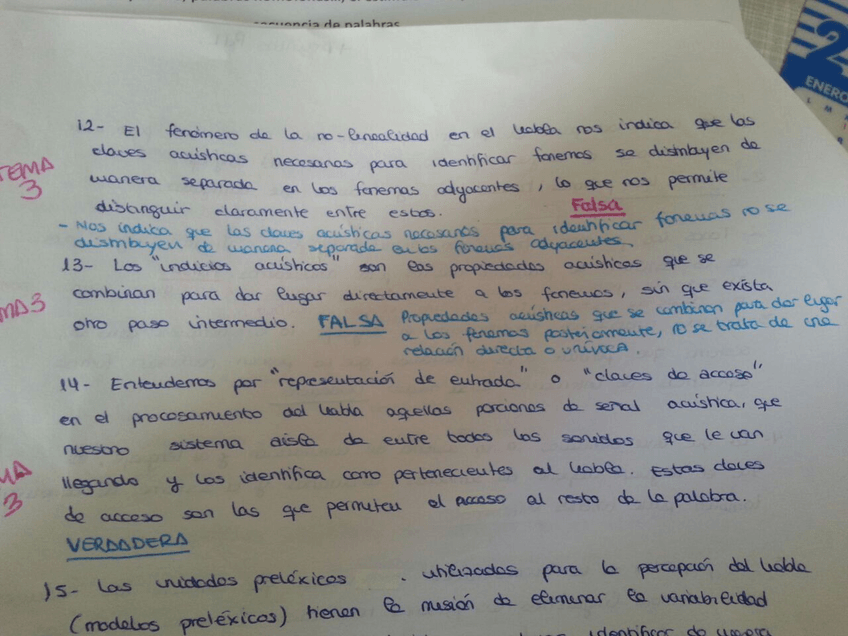 secuencia de palabras
ENERO
12- El fenómeno de la no-linealidad en el habla nos indica que las
claves acústicas necesarias para identificar fonemas se distribuyen de
TEMA
3
manera separada en los fonemas adyacentes, lo que nos permite
distinguir claramente entre estos. Falsa
- Nos indica que las claves acústicas necesarias para identificar fonemas no se
distribuyen de manera separada en los fonemas adyacentes.
13- Los "indicios acústicos" son las propiedades acústicas que se
combinan para dar lugar directamente a los fonemas, sin que exista
otro paso intermedio. FALSA Propiedades acústicas que se combinan para dar lugar
a los fonemas posteriormente, no se trata de una
relación directa o unívoca.
14- Entendemos por "representación de entrada" o "claves de acceso"
en el procesamiento del habla aquellas porciones de señal acústica, que
nuestro sistema aisla de entre todos los sonidos que le van
llegando y los identifica como pertenecientes al habla. Estas claves
de acceso son las que permiten el acceso al resto de la palabra.
VERDADERA
15- Las unidades preléxicas . utilizadas para la percepción del habla
(modelos preléxicos) tienen la misión de eliminar la variabilidad
identificar de